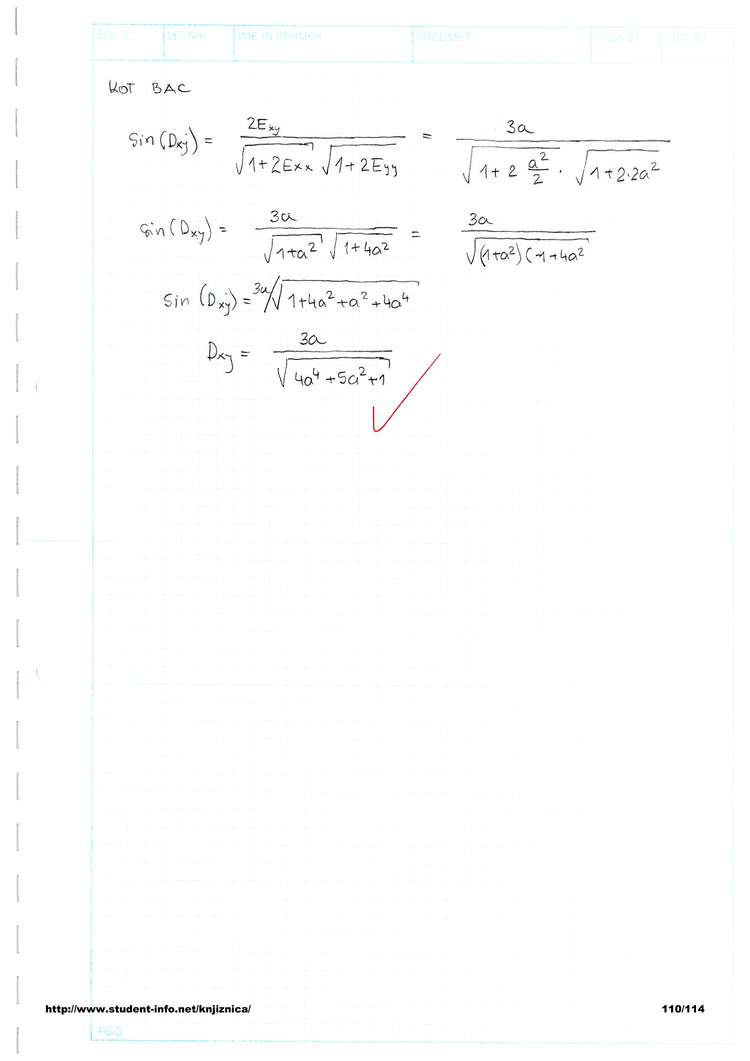 ŠOL. L.: LETNIK: IME IN PRIIMEK: PREDMET: VAJA ŠT. LIST ŠT.
KOT BAC
sin(Dxy) = 2Exy / (√(1+2Exx) √(1+2Eyy)) = 3a / (√(1+2 a²/2) · √(1+2·2a²))
sin(Dxy) = 3a / (√(1+a²) √(1+4a²)) = 3a / √((1+a²)(1+4a²
sin (Dxy) = 3a/√(1+4a²+a²+4a⁴)
Dxy = 3a / √(4a⁴+5a²+1)
http://www.student-info.net/knjiznica/ 110/114
FGG